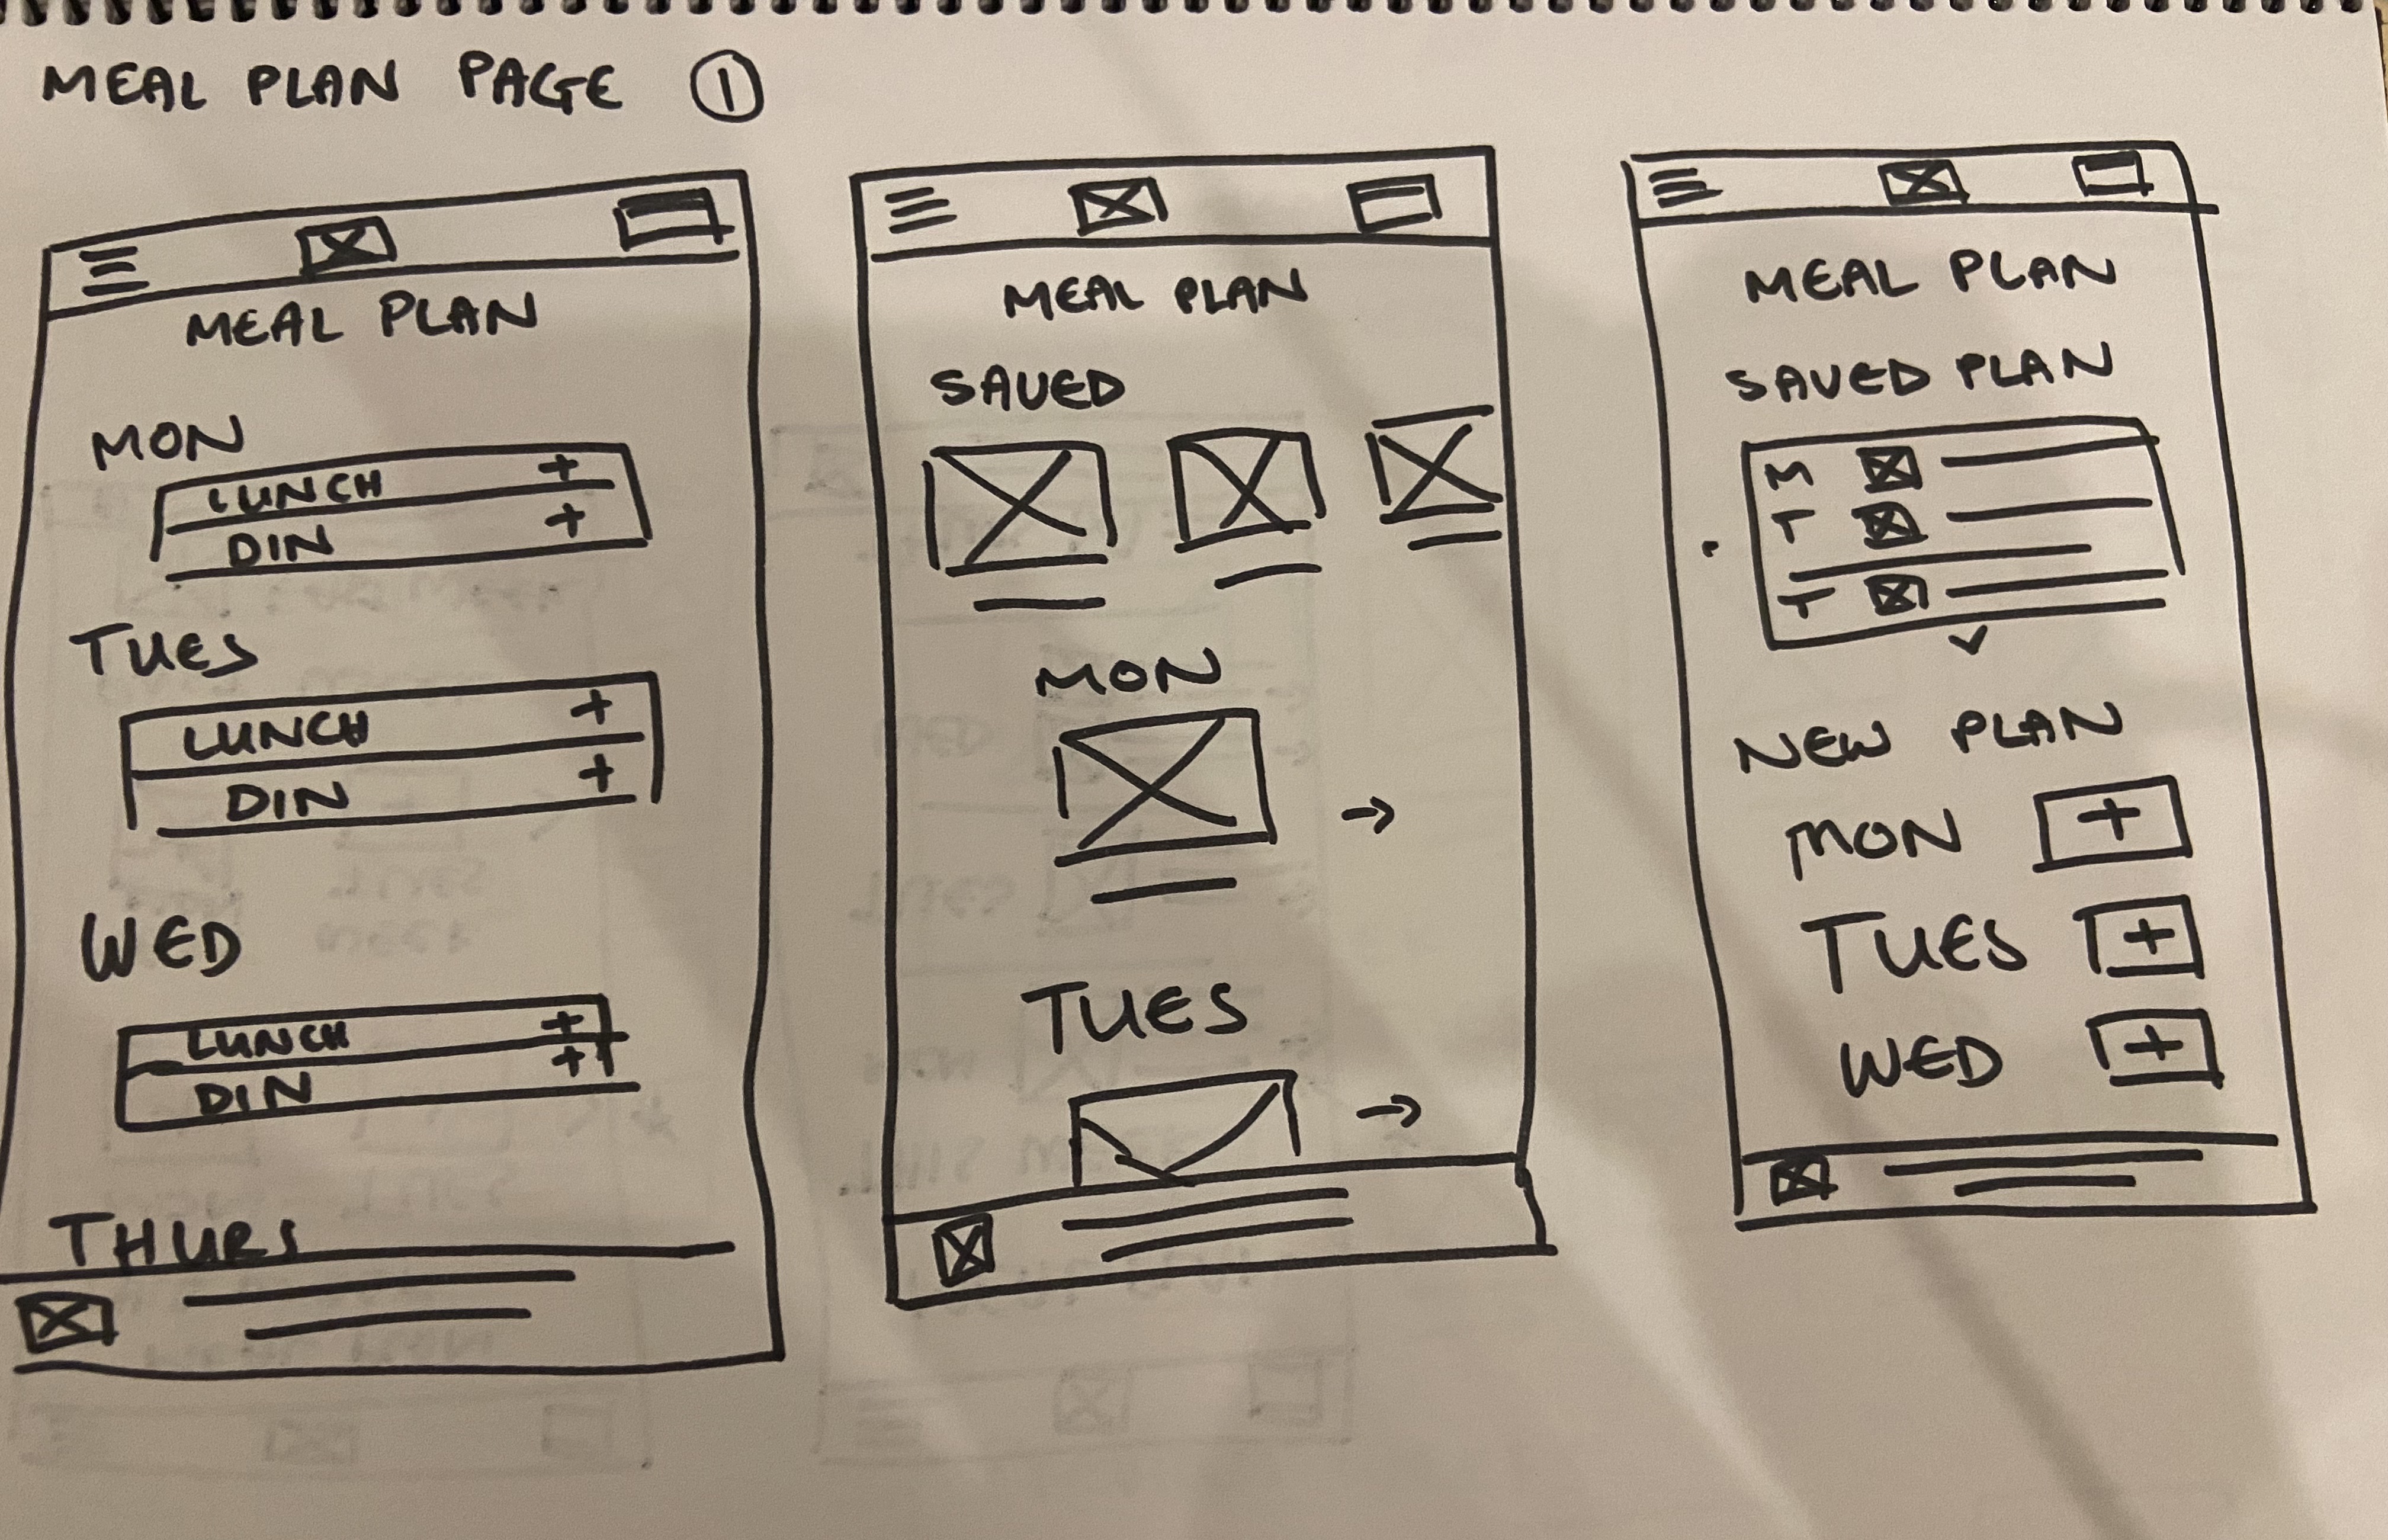 MEAL PLAN PAGE ①
MEAL PLAN
MON
LUNCH +
DIN +
TUES
LUNCH +
DIN +
WED
LUNCH +
DIN +
THURS
MEAL PLAN
SAVED
MON
→
TUES
→
MEAL PLAN
SAVED PLAN
M
T
T
NEW PLAN
MON +
TUES +
WED +